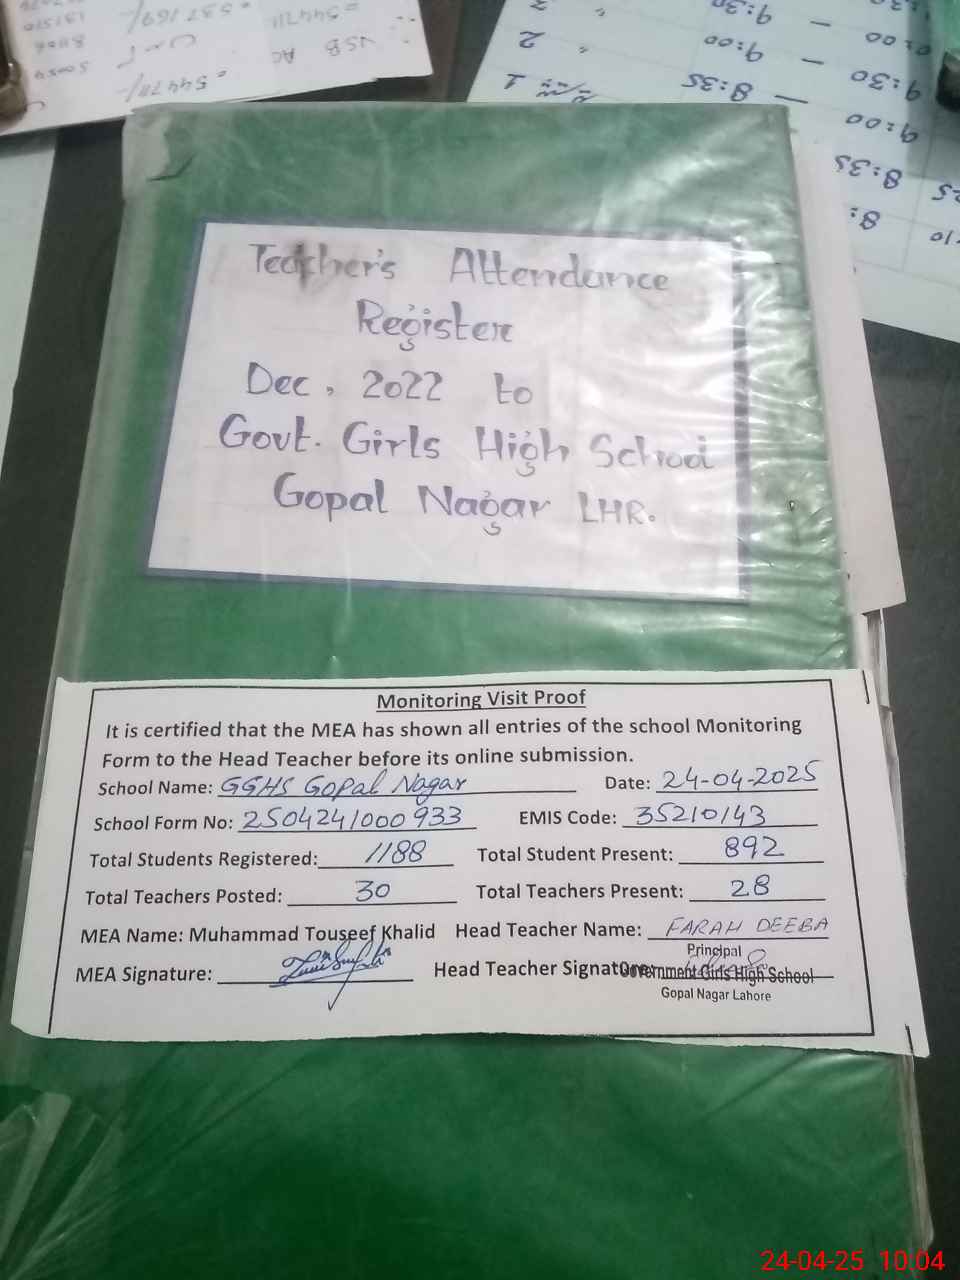 Teacher's Attendance
Register
Dec, 2022 to
Govt. Girls High School
Gopal Nagar LHR.
Monitoring Visit Proof
It is certified that the MEA has shown all entries of the school Monitoring
Form to the Head Teacher before its online submission.
School Name: GGHS Gopal Nagar Date: 24-04-2025
School Form No: 2504241000933 EMIS Code: 35210143
Total Students Registered: 1188 Total Student Present: 892
Total Teachers Posted: 30 Total Teachers Present: 28
MEA Name: Muhammad Touseef Khalid Head Teacher Name: FARAH DEEBA
MEA Signature: Head Teacher Signature:
Principal
Government Girls High School
Gopal Nagar Lahore
1 8:35 —
2 9:00 — 9:30
9:30 — 10:00
9:00
8:35
54471/-
USB AC
24-04-25 10:04